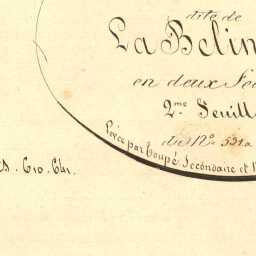 dite de
La Belin
en deux Feu
2.me Feuill
du N.o 531 a
Levée par Coupé, Secondaire et
s. 610. 641.